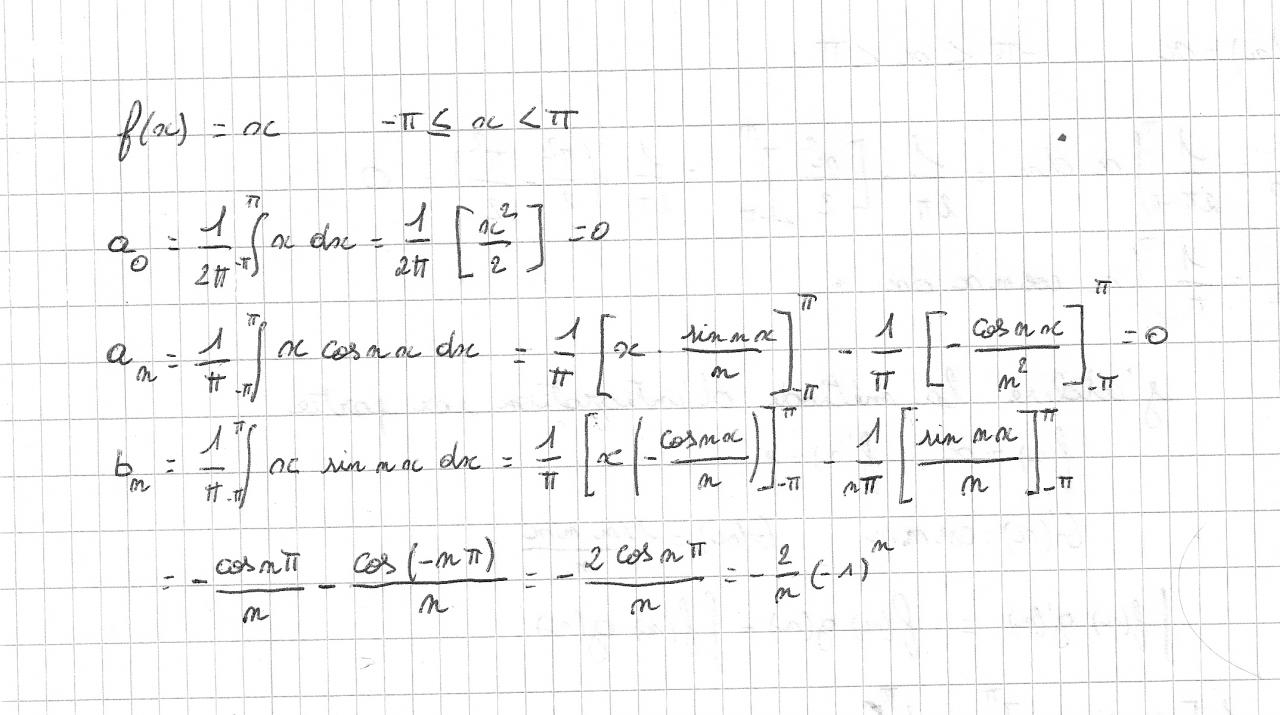 f(x) = x -π ≤ x < π
a₀ = 1/2π ∫_{-π}^{π} x dx = 1/2π [x²/2] = 0
aₙ = 1/π ∫_{-π}^{π} x cos nx dx = 1/π [x · sin nx/n]_{-π}^{π} - 1/π [- cos nx/n²]_{-π}^{π} = 0
bₙ = 1/π ∫_{-π}^{π} x sin nx dx = 1/π [x(- cos nx/n)]_{-π}^{π} - 1/nπ [sin nx/n]_{-π}^{π}
= - cos nπ/n - cos(-nπ)/n = - 2 cos nπ/n = - 2/n (-1)ⁿ